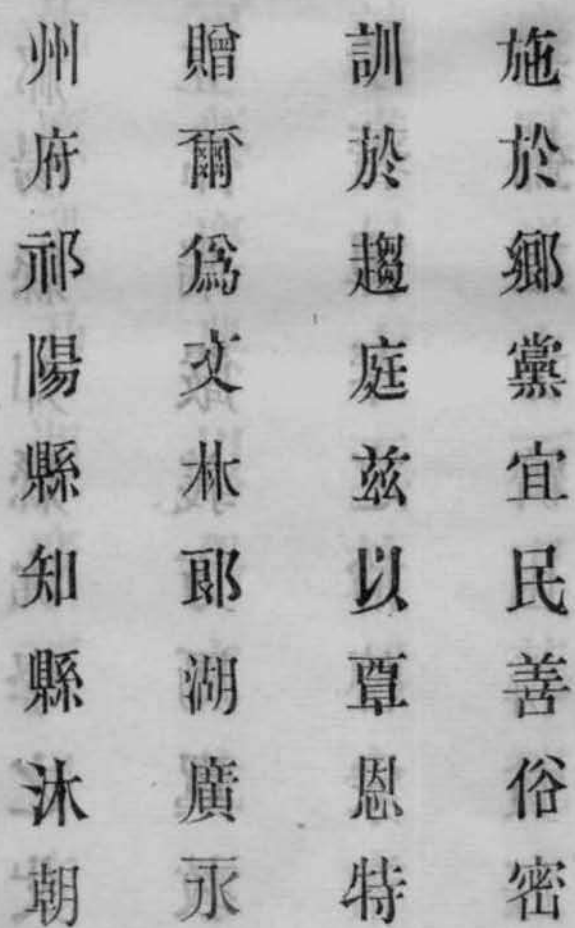 施於鄉黨宜民善俗密
訓於趨庭茲以覃恩特
贈爾爲文林郎湖廣永
州府祁陽縣知縣沐朝